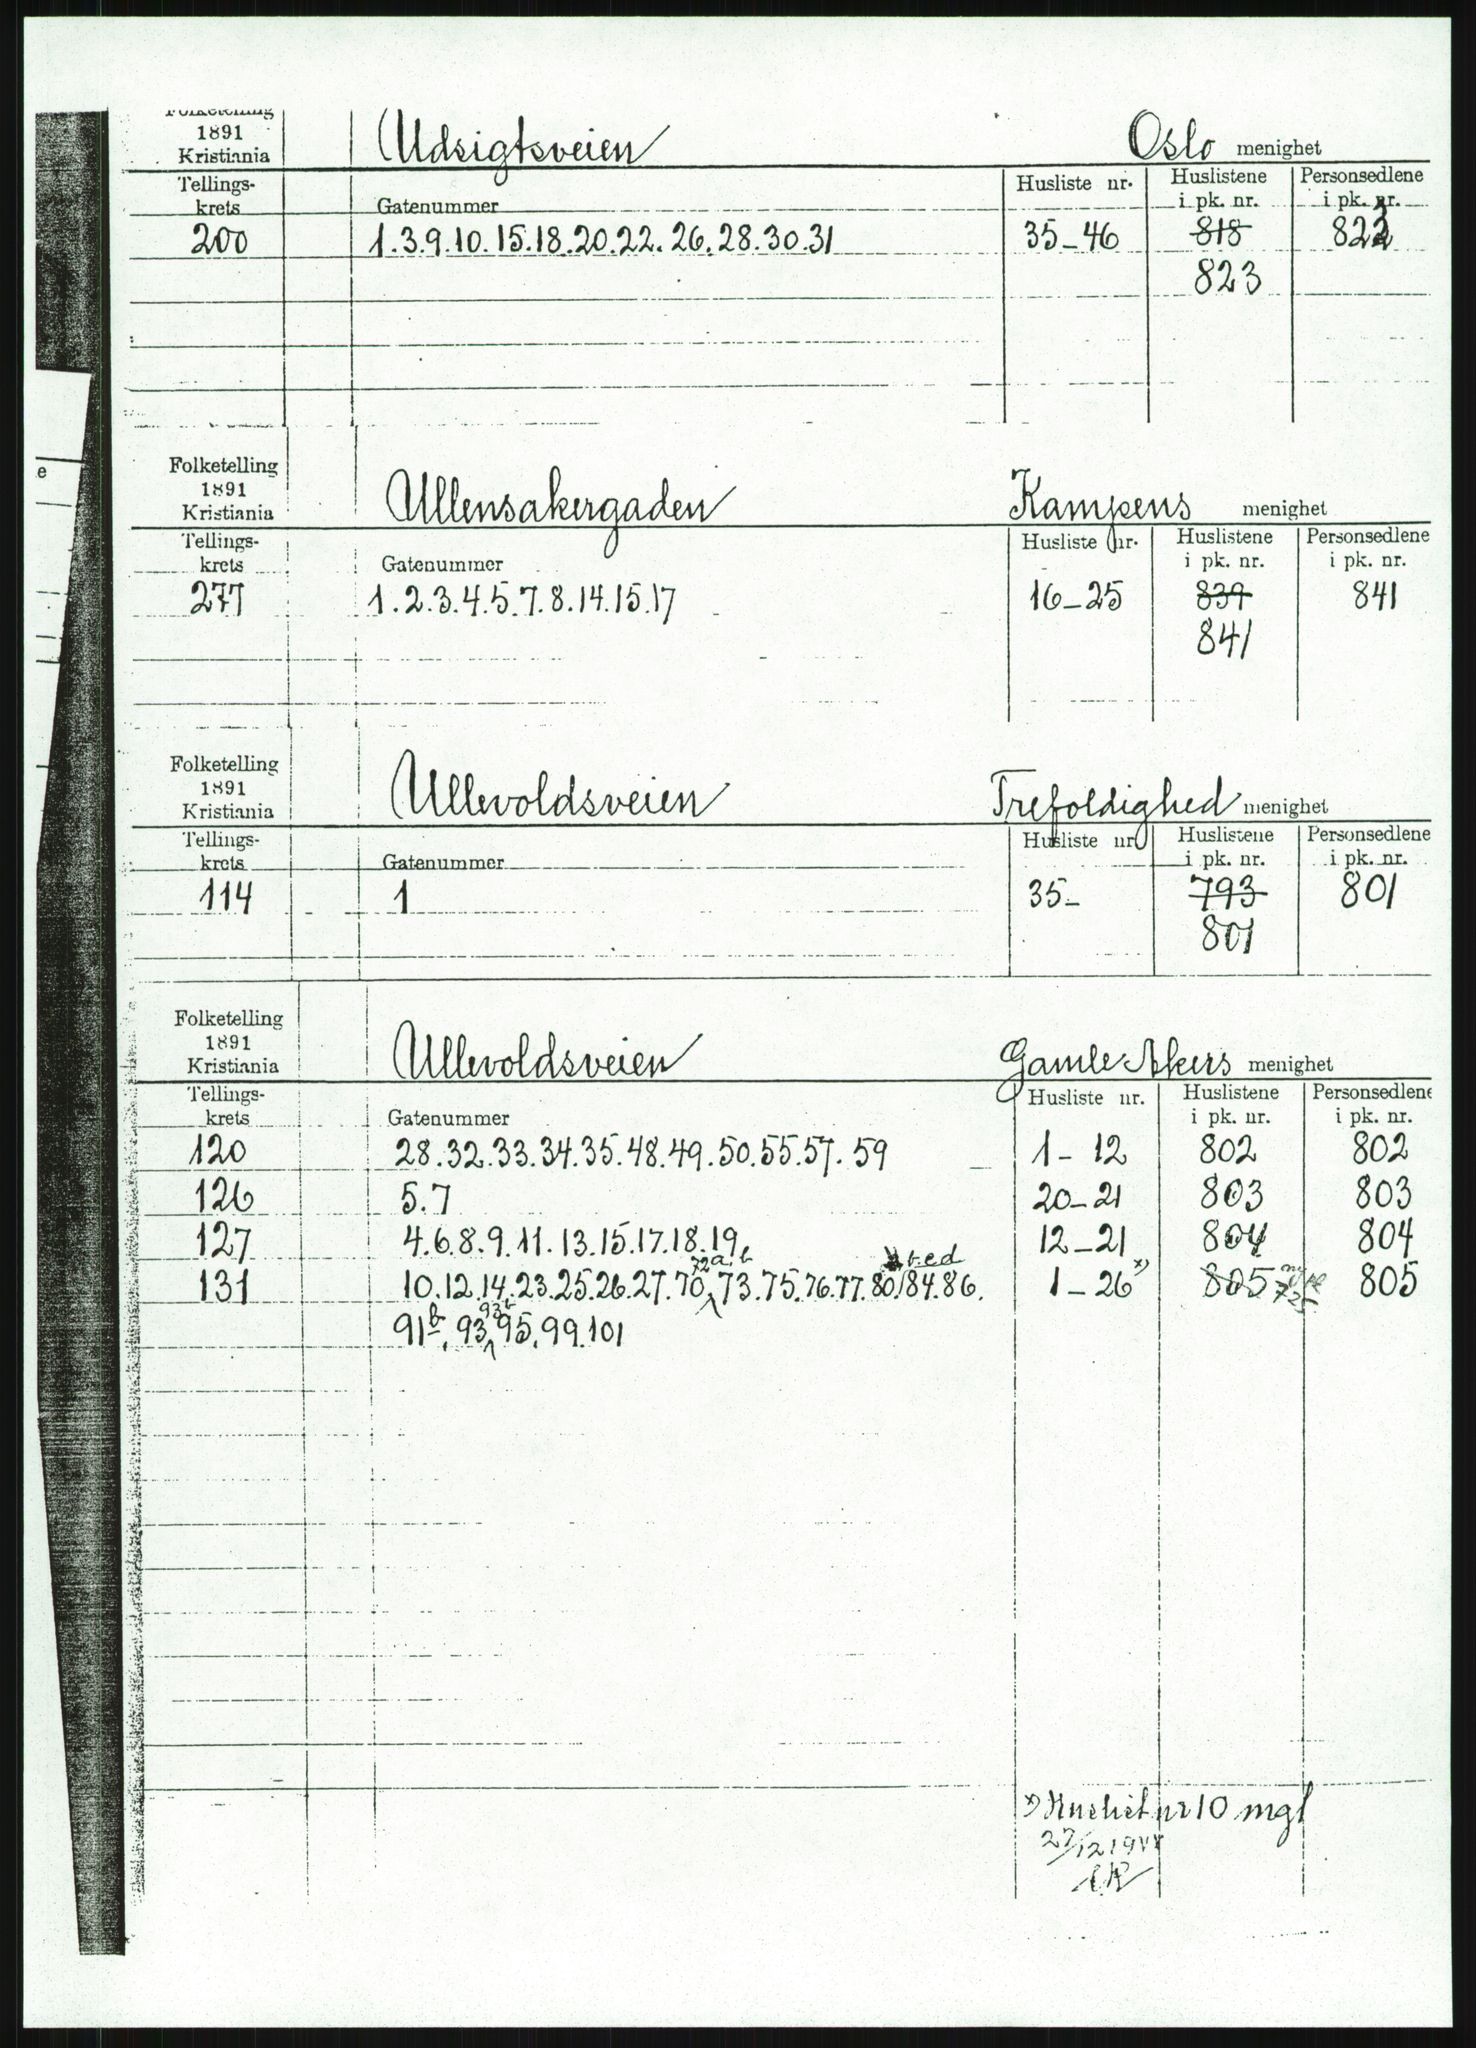 Folketelling
1891
Kristiania
Udsigtsveien
Oslo menighet
Tellings-
krets
Gatenummer
Husliste nr.
Huslistene
i pk. nr.
Personsedlene
i pk. nr.
200 1.3.9.10.15.18.20.22.26.28.30.31 35-46 818
823
Folketelling
1891
Kristiania
Ullensakergaden
Kampens menighet
Tellings-
krets
Gatenummer
Husliste nr.
Huslistene
i pk. nr.
Personsedlene
i pk. nr.
277 1.2.3.4.5.7.8.14.15.17 16-25 839 841
841
Folketelling
1891
Kristiania
Ullevoldsveien
Trefoldighed menighet
Tellings-
krets
Gatenummer
Husliste nr.
Huslistene
i pk. nr.
Personsedlene
i pk. nr.
114 1 35- 793 801
801
Folketelling
1891
Kristiania
Ullevoldsveien
Gamle Akers menighet
Tellings-
krets
Gatenummer
Husliste nr.
Huslistene
i pk. nr.
Personsedlene
i pk. nr.
120 28.32.33.34.35.48.49.50.55.57.59 1-12 802 802
126 5.7 20-21 803 803
127 4.6.8.9.11.13.15.17.18.19 12-21 804 804
72a.b b.c.d
131 10.12.14.23.25.26.27.70 73.75.76.77.80 84.86. 1-26 x) 805 805
93b
91b. 93 95.99.101
x) Huslist nr 10 mgl